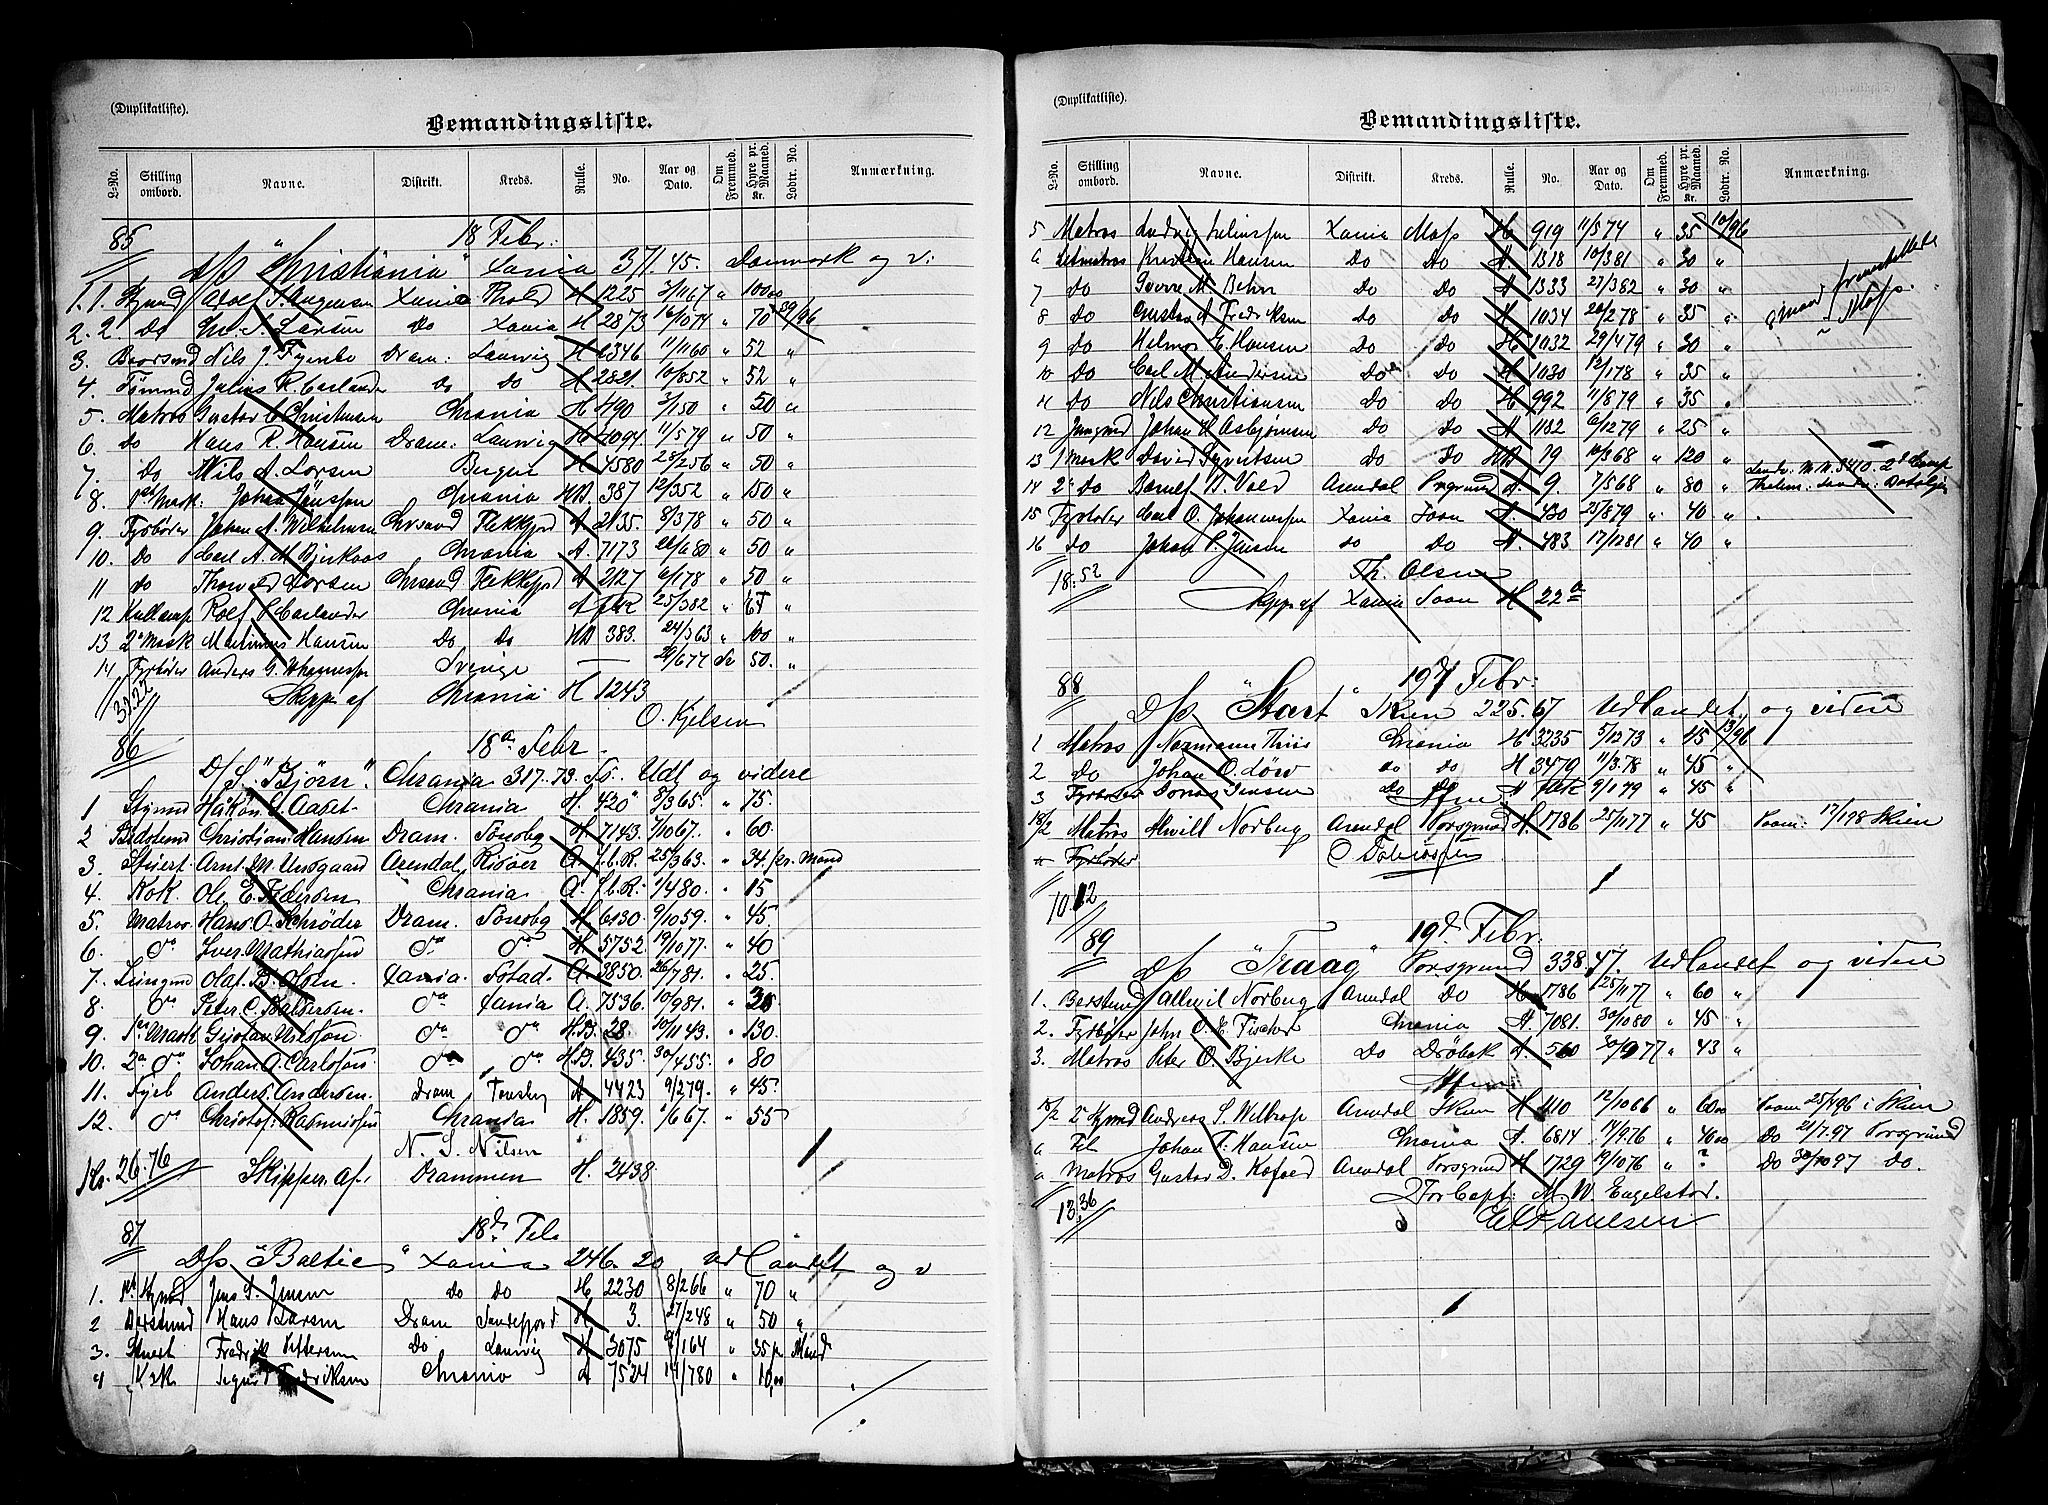 (Duplikatliste).
Bemandingsliste.
L-No. Stilling ombord. Navne. Distrikt. Kreds. Rulle. No. Aar og Dato. Om Fremmed. Hyre pr. Maaned. Kr. Lodtr. No. Anmærkning.
85 18 Febr:
D/s "Christiania" Xania 371.45. Danmark og v:
1. 1. Stymd Xania H 1225 3/1167 " 100
2. 2. Do M. S. Larsen Do Xania H 2873 16/1074 " 70 29/96
3. Nils J. Dram: Laurvig H 1346 11/1160 " 52 "
4. Tømmd Julius R. Carlander do do H 2821. 10/852 " 52 "
5. Matros Gustav C. Christensen Chrania H 490 3/150 " 50 "
6. do Hans R. Hansen Dram. Laurvig H 1094 11/579 " 50 "
7. Do Nils A. Larsen Bergen H 4580 25/256 " 50 "
8. 1ste Mask: Johan Jonsson Chrania HB. 387 12/352 " 150 "
9. Fyrbøder Johan A. Wilhelmsen Chrsand Flekkfjord A 2135. 8/378 " 50 "
10. Do Carl A. M. Bjerkaas Chrania A. 7173 26/680 " 50 "
11 do Thorvald Larsen Chrsand Flekkfjd A 2127 6/178 " 50 "
12 Rolf C. Carlander Chrania A fbR 25/382 "
13 2n Mask Martinius Hansen Do Do HB 383. 24/363 " 100 "
14 Fyrbøder Anders G. Johannesson Sverige — 29/677 Sv 50. "
32.22 Skipper af Chrania H 1243
O. Kjelsen
86 18de Febr
D/S. "Bjørn". Chrania 317.73. Udl og videre
1 Stymd Håkon Chrania H. 420 8/365. " 75.
2 Bdstmd Christian Hansen Dram. Tönsbg H. 7143. 7/1067. " 60.
3. Stuert Arnt M. Undgaard Arendal Risöer A. f.b.R. 25/363. " 34. pr. Mand
4. Kok. Ole E. Pedersen Chrania A. f.b.R. 1/480. " 15
5. Matros Hans O. Schrøder Dram. Tönsbg H. 6130. 9/1059. " 45.
6. do Iver Mathiassen do do H. 5752. 19/1077. " 40
7. Jungmd Olaf B. Olsen. Xania. A. 3850. 26/781. " 25.
8. do Peter C. Pedersen. do Xania A. 7536. 10/981. " 35
9. 1ste Mask Gustav Nilsson. do do H.B. 28. 10/1143. " 130.
10. 2n do Johan A. Carlsson do do H.B. 435. 30/455. " 80
11. Fyrb Anders Andersen. Dram Tønsberg A 4423 9/279. " 45.
12. do Christof. Rasmussen Chrania H. 1859. 1/667. " 55
N. S. Nilsen
Kr. 26.76 Skipper af. Drammen H. 2438.
87 18de Feb
D/s "Baltic" Xania 246. 20 Udlandet og v
1. 1ste Stymd Jens S. Jensen do do H. 2230 8/266 " 70 "
2 Bdstmd Hans Larsen Dram Sandefjord H 3. 27/248 " 50 "
3. Stuert Fredrik Pettersen Do Laurvig H 3075 9/164 " 35 pr Mand
4 Kok Sigurd Fredriksen Chrania A 7524 14/780 " 10,00
(Duplikatliste).
Bemandingsliste.
L-No. Stilling ombord. Navne. Distrikt. Kreds. Rulle. No. Aar og Dato. Om Fremmed. Hyre pr. Maaned. Kr. Lodtr. No. Anmærkning.
5 Matros Ludvig Xania Moss H 919 11/574 " 35 10/96
6 Letmatros Kristian Hansen Do Do A. 1318 10/381 " 30 "
7 do Sverre M. Behn Do Do A 1333 27/382 " 30 "
8 Do Gustav A Fredriksen Do Do A 1034 26/278 " 35 "
9 Do Helmer E. Hansen Do Do H 1032 29/479 " 30 "
10 Do Carl M. Andersen Do Do H 1030 12/178 " 35 "
11 do Nils Christiansen Do Do H 992 11/879 " 35 "
12 Jungmd Johan H. Asbjørnsen Do Do A 1132 6/1279 " 25 "
13 1 Mask David Syvertsen Do Do HB 19 10/368 " 120 "
14 2n Do Bernt N. Vold Arendal Porsgrund A. 9. 7/568 " 80 "
15 Fyrbøder Carl O. Johannessen Xania Soon A. 430 25/879 " 40 "
16 do Johan P. Jensen do Do A. 483 17/1281 " 40 "
18.52 Th. Olsen
Skipper af Xania Soon H 22a
88 19de Febr:
D/s "Start" Skien 225.67 Udlandet og videre
1 Matros Normann Thiis Chrania H 3235 5/1273 " 45 13/96
2 Do Johan O. Löw do do H 3479 11/378 " 45 "
3 Fyrbøder Jonas Jensen Do Do A fbR 9/179 " 45 "
18/2 Matros Alwill Norberg Arendal Porsgrund H 1786 25/1177 " 45 Paam: 17/198 Skien
Fyrbøder C Tobiassen
10.12
89 19d. Febr.
D/s "Traag" Porsgrund 338.47. Udlandet og videre
1. Bdstmd Allwil Norberg Arendal Do H 1786 25/1177 " 60 "
2. Fyrbøder John O. E. Fischer Chrania A. 7081. 30/1080 " 45 "
3. Matros Peter O. Bjerke Do Drøbak A. 560 30/977 " 43 "
18/2 2 Stymd Andreas S. Weltrop Arendal Skien H 410 12/1066 " 6000 Paam 25/496 i Skien
" Johan T. Hansen Chrania A. 6814 14/976 " 4000 Do 21/7.97 Porsgrund
" Matros Gustav D. Kofoed Arendal Porsgrund H 1729 19/1076 " ? Do 30/1097 Do.
For Capt: M W Engelstad.
13.36